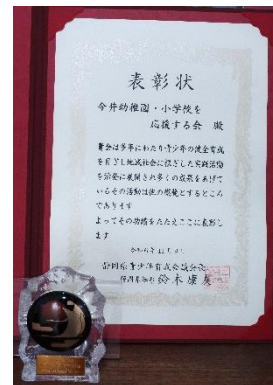 表彰状
今井幼稚園・小学校を
応援する会 殿
貴会は多年にわたり青少年の健全育成
を目ざし地域社会に根ざした実践活動
を活発に展開され多くの成果をあげて
いるその活動は他の模範とするところ
であります
よってその功績をたたえここに表彰し
ます
静岡県青少年育成会議会長
静岡県知事 鈴木康友